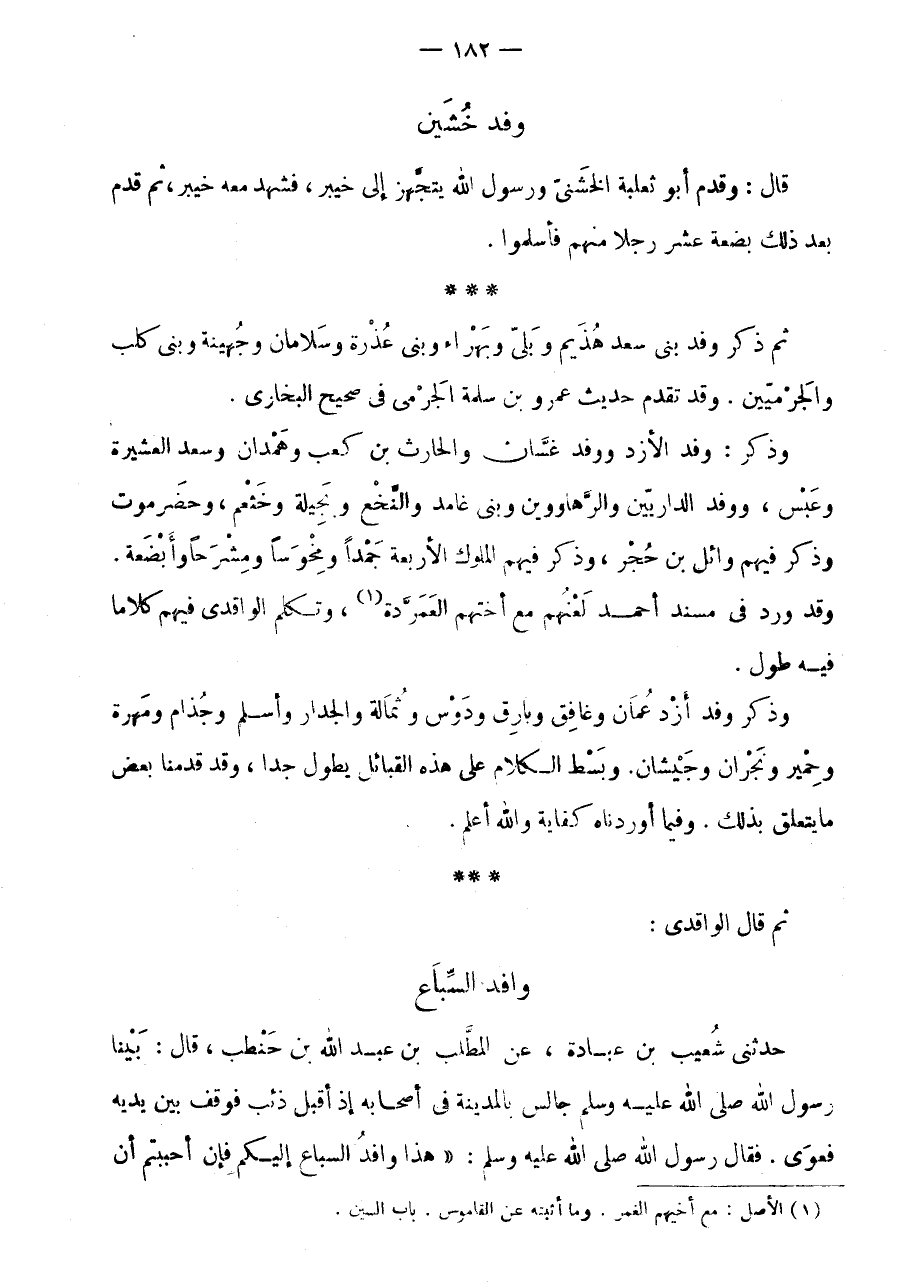 — ١٨٢ —
وفد خُشَين
قال : وقدم أبو ثعلبة الخَشَنىّ ورسول الله يتجَّهز إلى خيبر ، فشهد معه خيبر ، ثم قدم
بعد ذلك بضعة عشر رجلا منهم فأسلموا .
* * *
ثم ذكر وفد بنى سعد هُذَيم وَبَلىّ وبَهْراء وبنى عُذْرة وسَلامان وجُهينة وبنى كلب
والَجرْميّين . وقد تقدم حديث عمرو بن سلمة الَجرْمى فى صحيح البخارى .
وذكر : وفد الأزد ووفد غسَّان والحارث بن كعب وهَمْدان وسعد العشيرة
وعَبْس ، ووفد الداريّين والرَّهاووين وبنى غامد والنَّخْع وبَجِيلة وخَثْعم ، وحضَرموت
وذكر فيهم وائل بن حُجْر ، وذكر فيهم الملوك الأربعة جَمْداً ومِخْوَساً ومِشْرَحاً وأَبْضَعة .
وقد ورد فى مسند أحمد لَعْنُهم مع أختهم العَمَرَّدة(١) ، وتكلم الواقدى فيهم كلاما
فيه طول .
وذكر وفد أَزْد عُمَان وغافِق وبارِق ودَوْس وثُمَالة والجدار وأسلم وجُذام ومَهرة
وحِمْير ونَجْران وجَيْشان. وبَسْط الكلام على هذه القبائل يطول جدا ، وقد قدمنا بعض
مايتعلق بذلك . وفيما أوردناه كفاية والله أعلم .
* * *
ثم قال الواقدى :
وافد السِّباَع
حدثنى شُعيب بن عبادة ، عن المطَّلب بن عبد الله بن حَنْطب ، قال : بَيْنا
رسول الله صلى الله عليه وسلم جالس بالمدينة فى أصحابه إذ أقبل ذئب فوقف بين يديه
فعوَى . فقال رسول الله صلى الله عليه وسلم : « هذا وافدُ السباع إليكم فإن أحببتم أن
(١) الأصل : مع أخيهم الغمر . وما أثبته عن القاموس . باب السين .